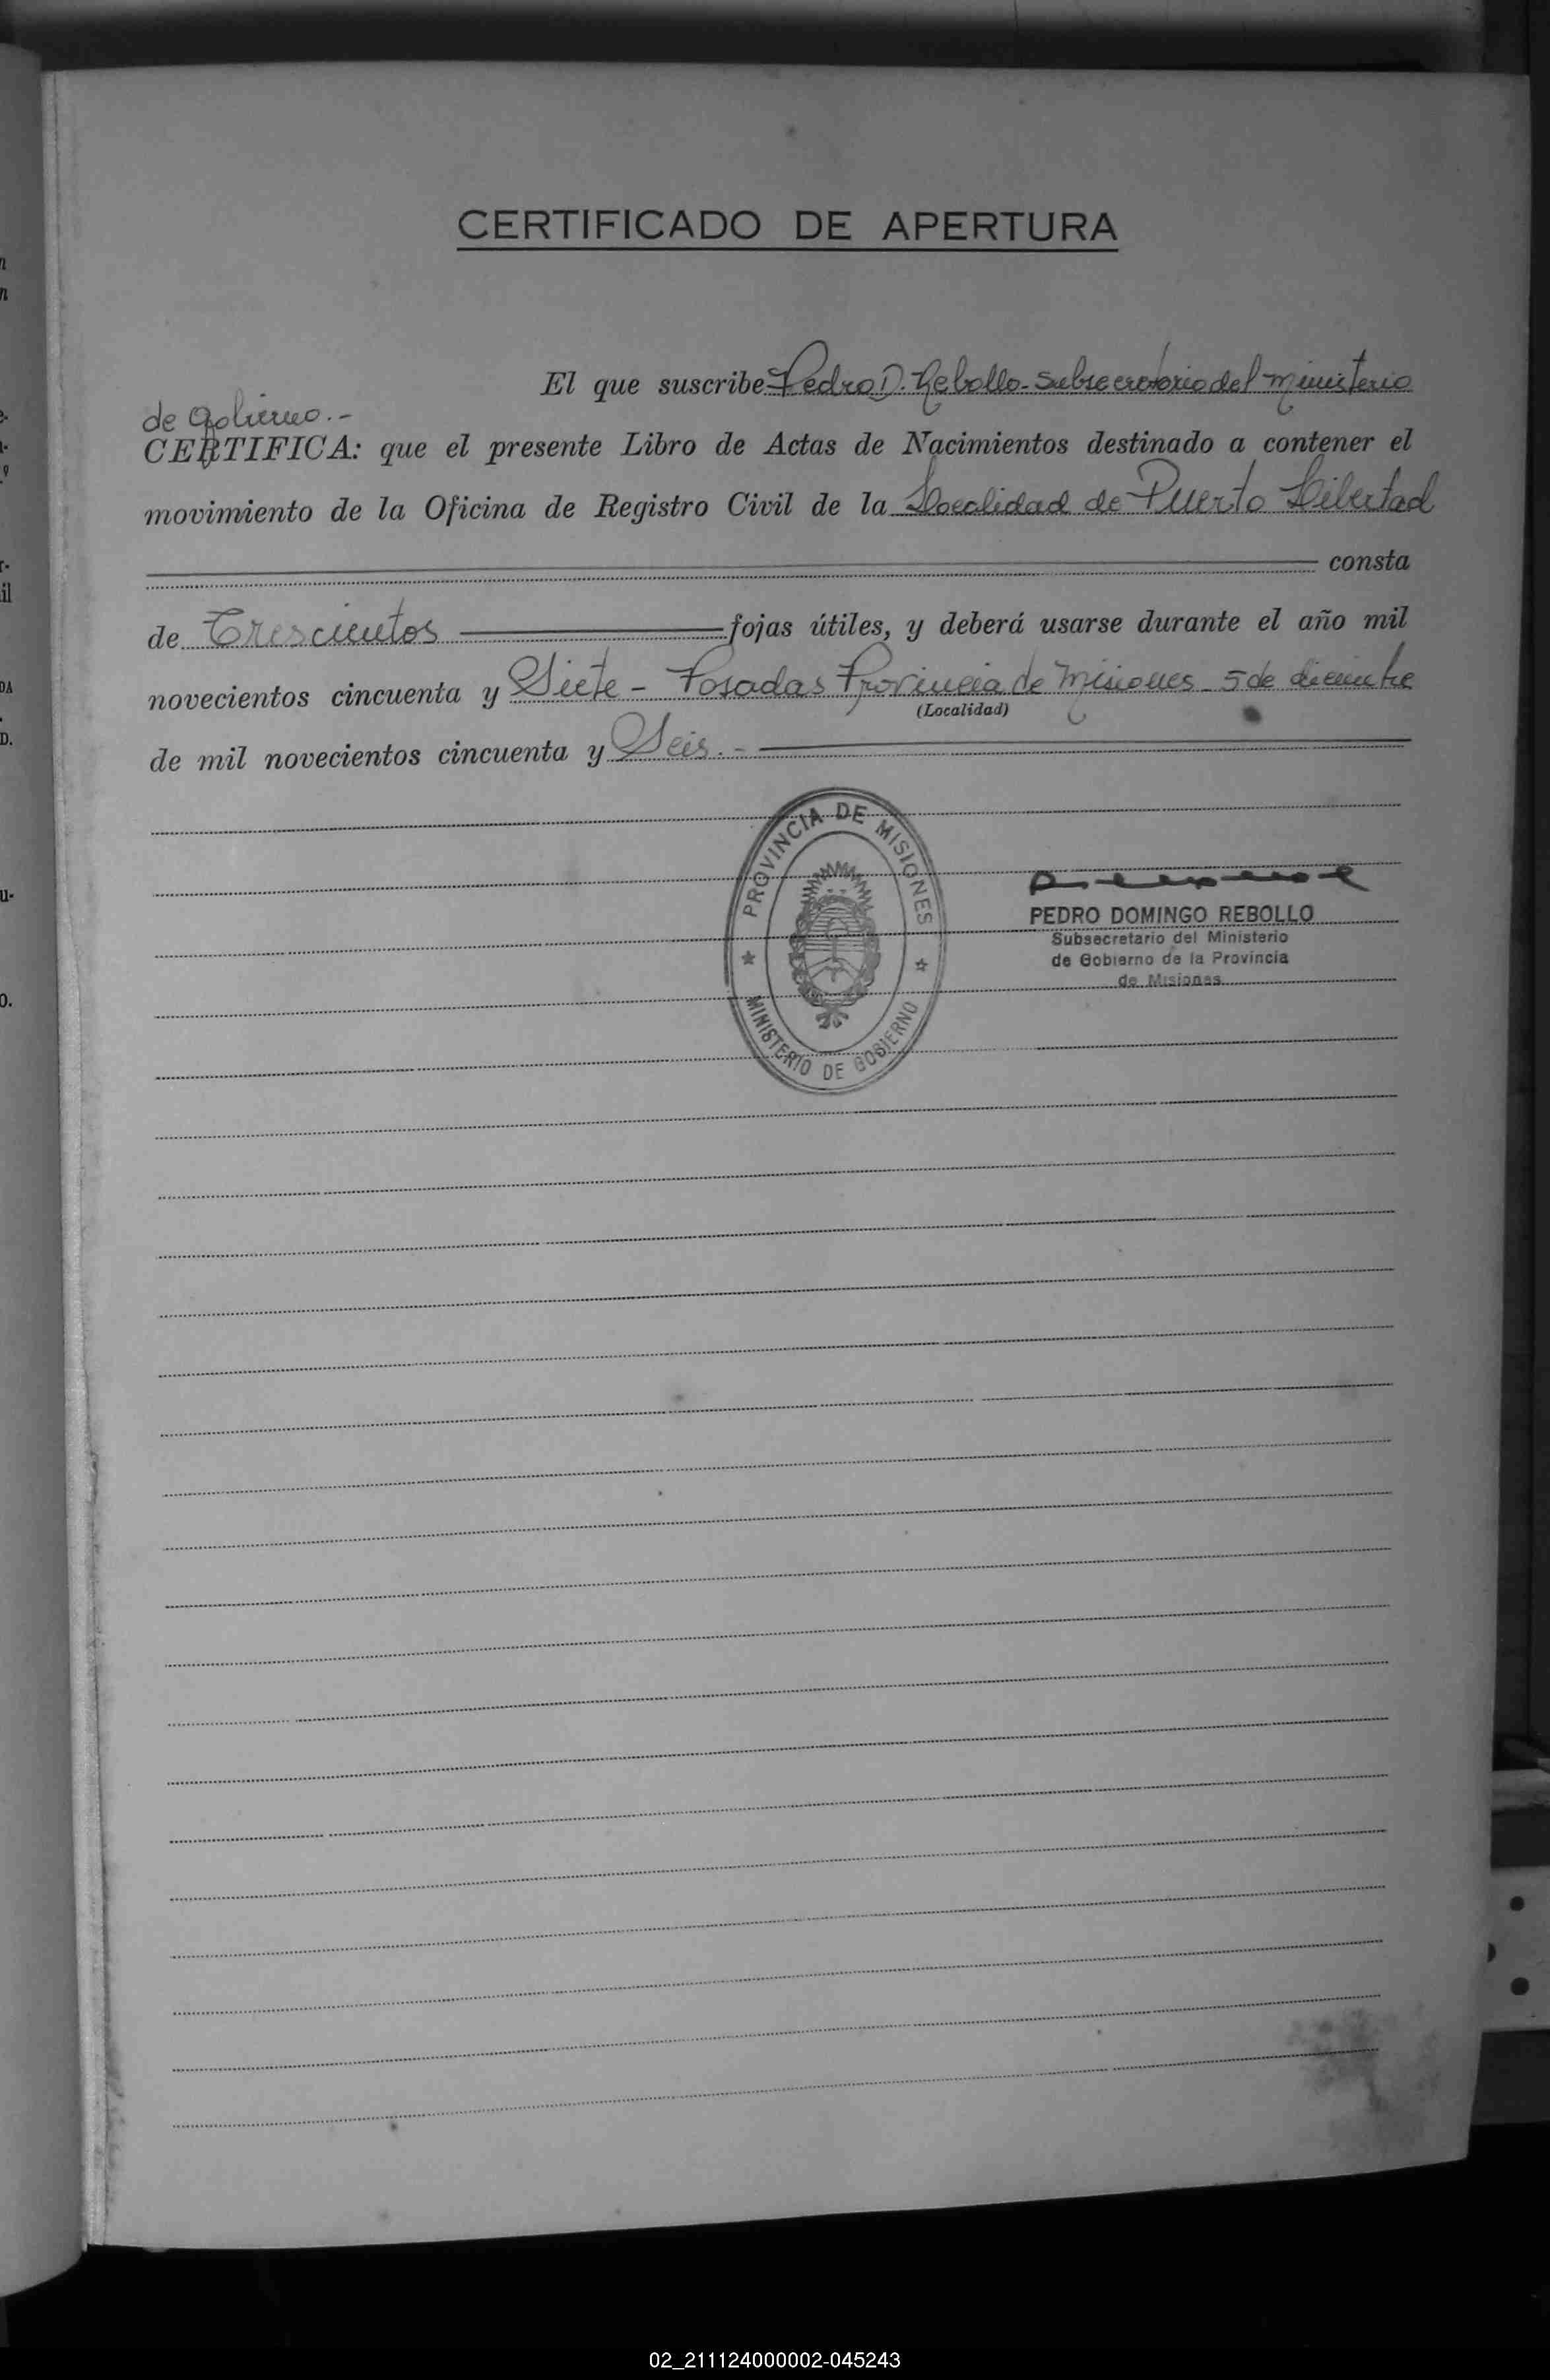 CERTIFICADO DE APERTURA
El que suscribe Pedro D. Rebollo - Subsecretario del Ministerio
de Gobierno.-
CERTIFICA: que el presente Libro de Actas de Nacimientos destinado a contener el
movimiento de la Oficina de Registro Civil de la Localidad de Puerto Libertad
consta
de Trescientos fojas útiles, y deberá usarse durante el año mil
novecientos cincuenta y Siete - Posadas Provincia de Misiones - 5 de diciembre
(Localidad)
de mil novecientos cincuenta y Seis.-
PROVINCIA DE MISIONES
MINISTERIO DE GOBIERNO
PEDRO DOMINGO REBOLLO
Subsecretario del Ministerio
de Gobierno de la Provincia
de Misiones
02_211124000002-045243